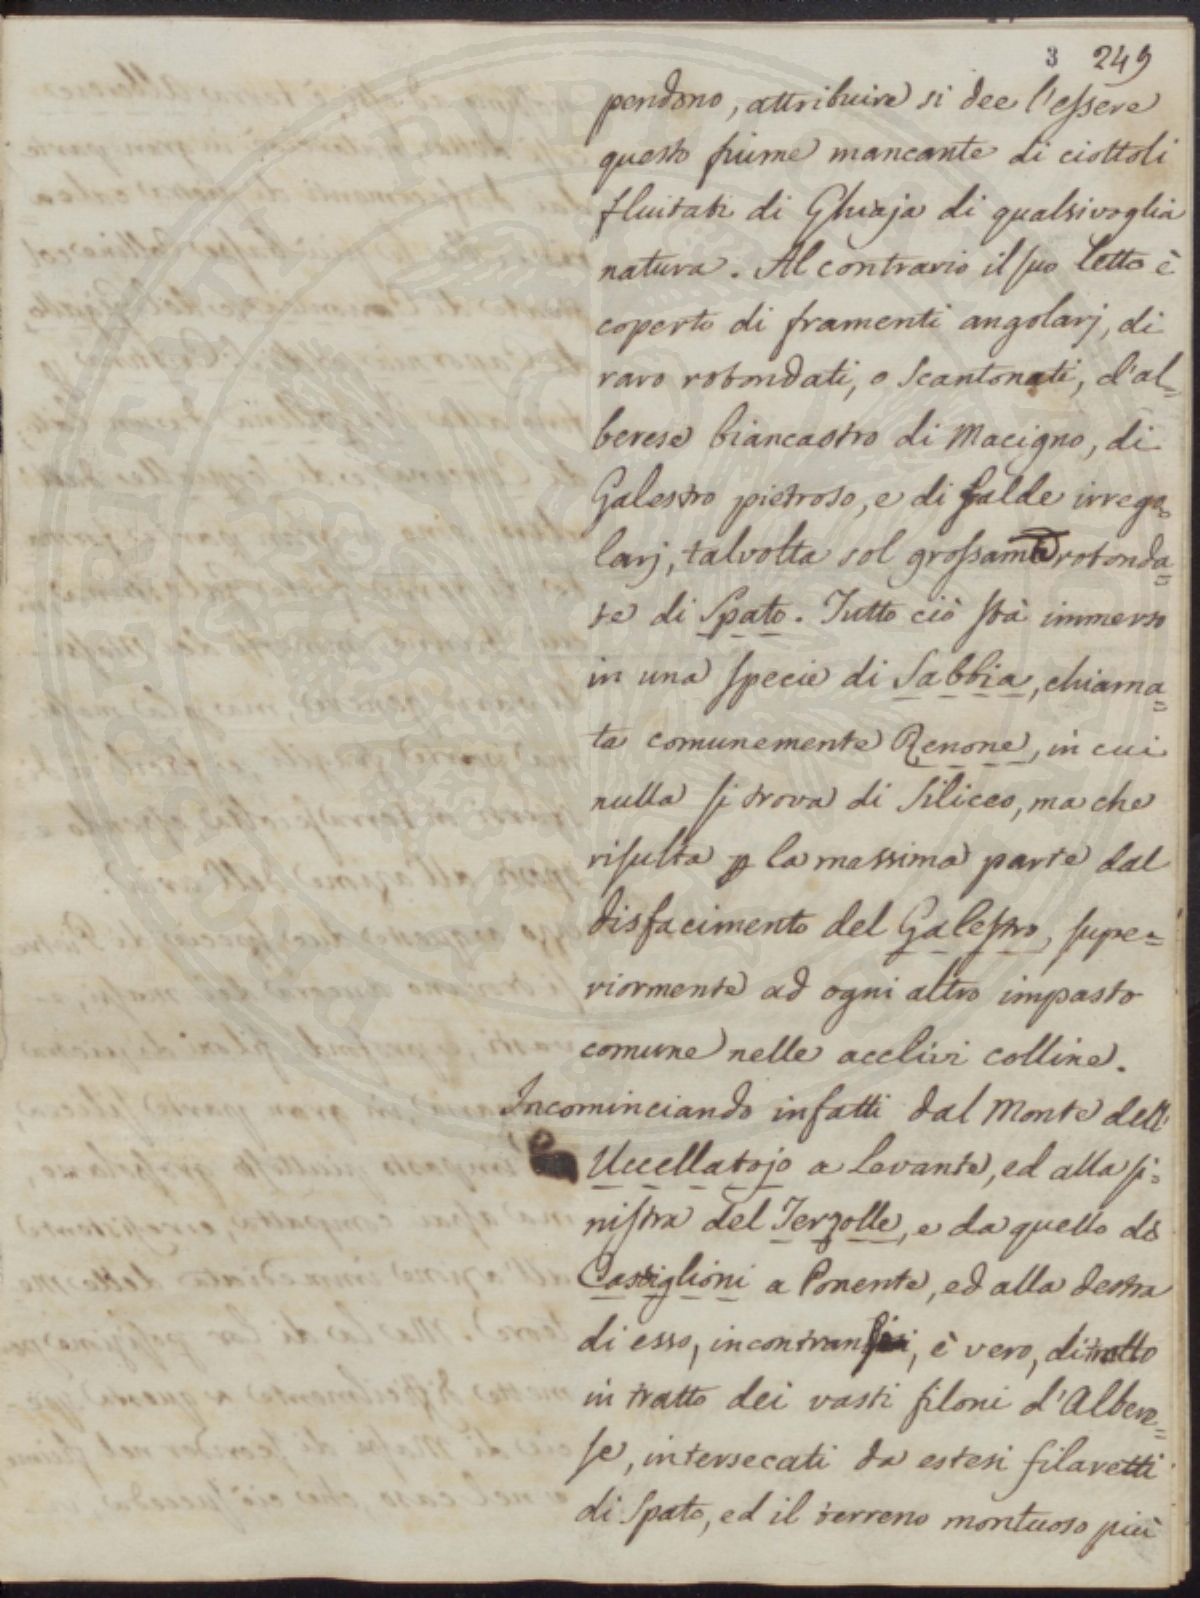 3 249
pendono, attribuire si dee l'essere
questo fiume mancante di ciottoli
fluitati di Ghiaja di qualsivoglia
natura. Al contrario il suo letto è
coperto di framenti angolarj, di
raro rotondati, o scantonati, d'al=
berese biancastro di Macigno, di
Galestro pietroso, e di falde irrego=
larj, talvolta sol grossamte rotonda=
te di Spato. Tutto ciò stà immerso
in una specie di Sabbia, chiama=
ta comunemente Renone, in cui
nulla si trova di Siliceo, ma che
risulta p la massima parte dal
disfacimento del Galestro, supe=
riormente ad ogni altro impasto
comune nelle acclivi colline.
Incominciando infatti dal Monte dell'
Uccellatojo a Levante, ed alla si=
nistra del Terzolle, e da quello di
Castiglioni a Ponente, ed alla destra
di esso, incontransi, è vero, di tratto
in tratto dei vasti filoni d'Albere=
se, intersecati da estesi filaretti
di Spato, ed il terreno montuoso più